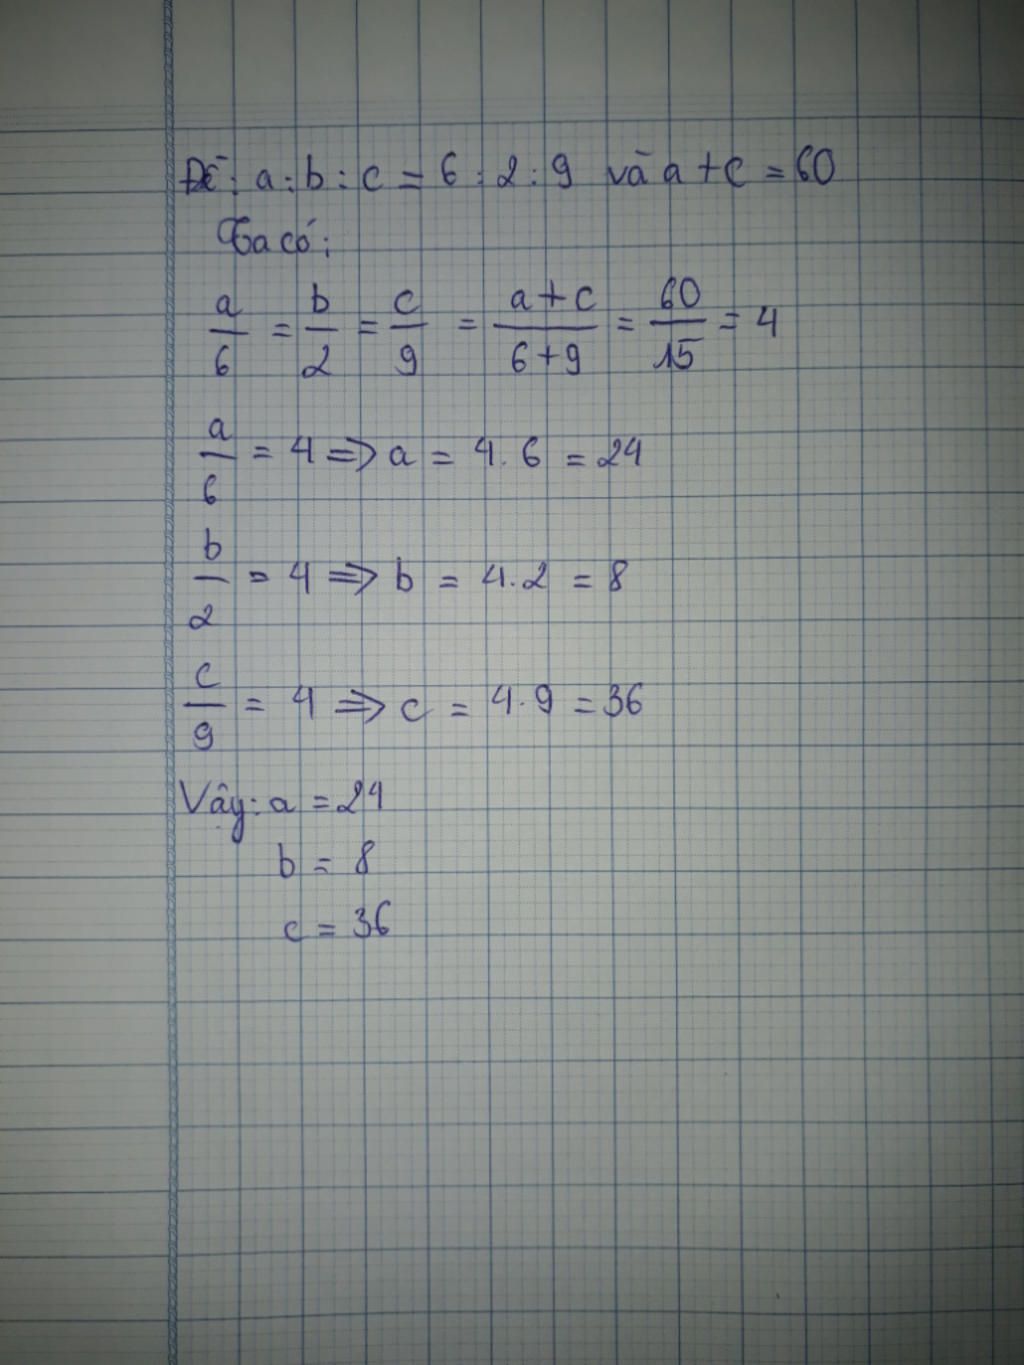 Đề: a:b:c = 6:2:9 và a+c = 60
Ta có:
a/6 = b/2 = c/9 = a+c/6+9 = 60/15 = 4
a/6 = 4 => a = 4.6 = 24
b/2 = 4 => b = 4.2 = 8
c/9 = 4 => c = 4.9 = 36
Vậy: a = 24
b = 8
c = 36